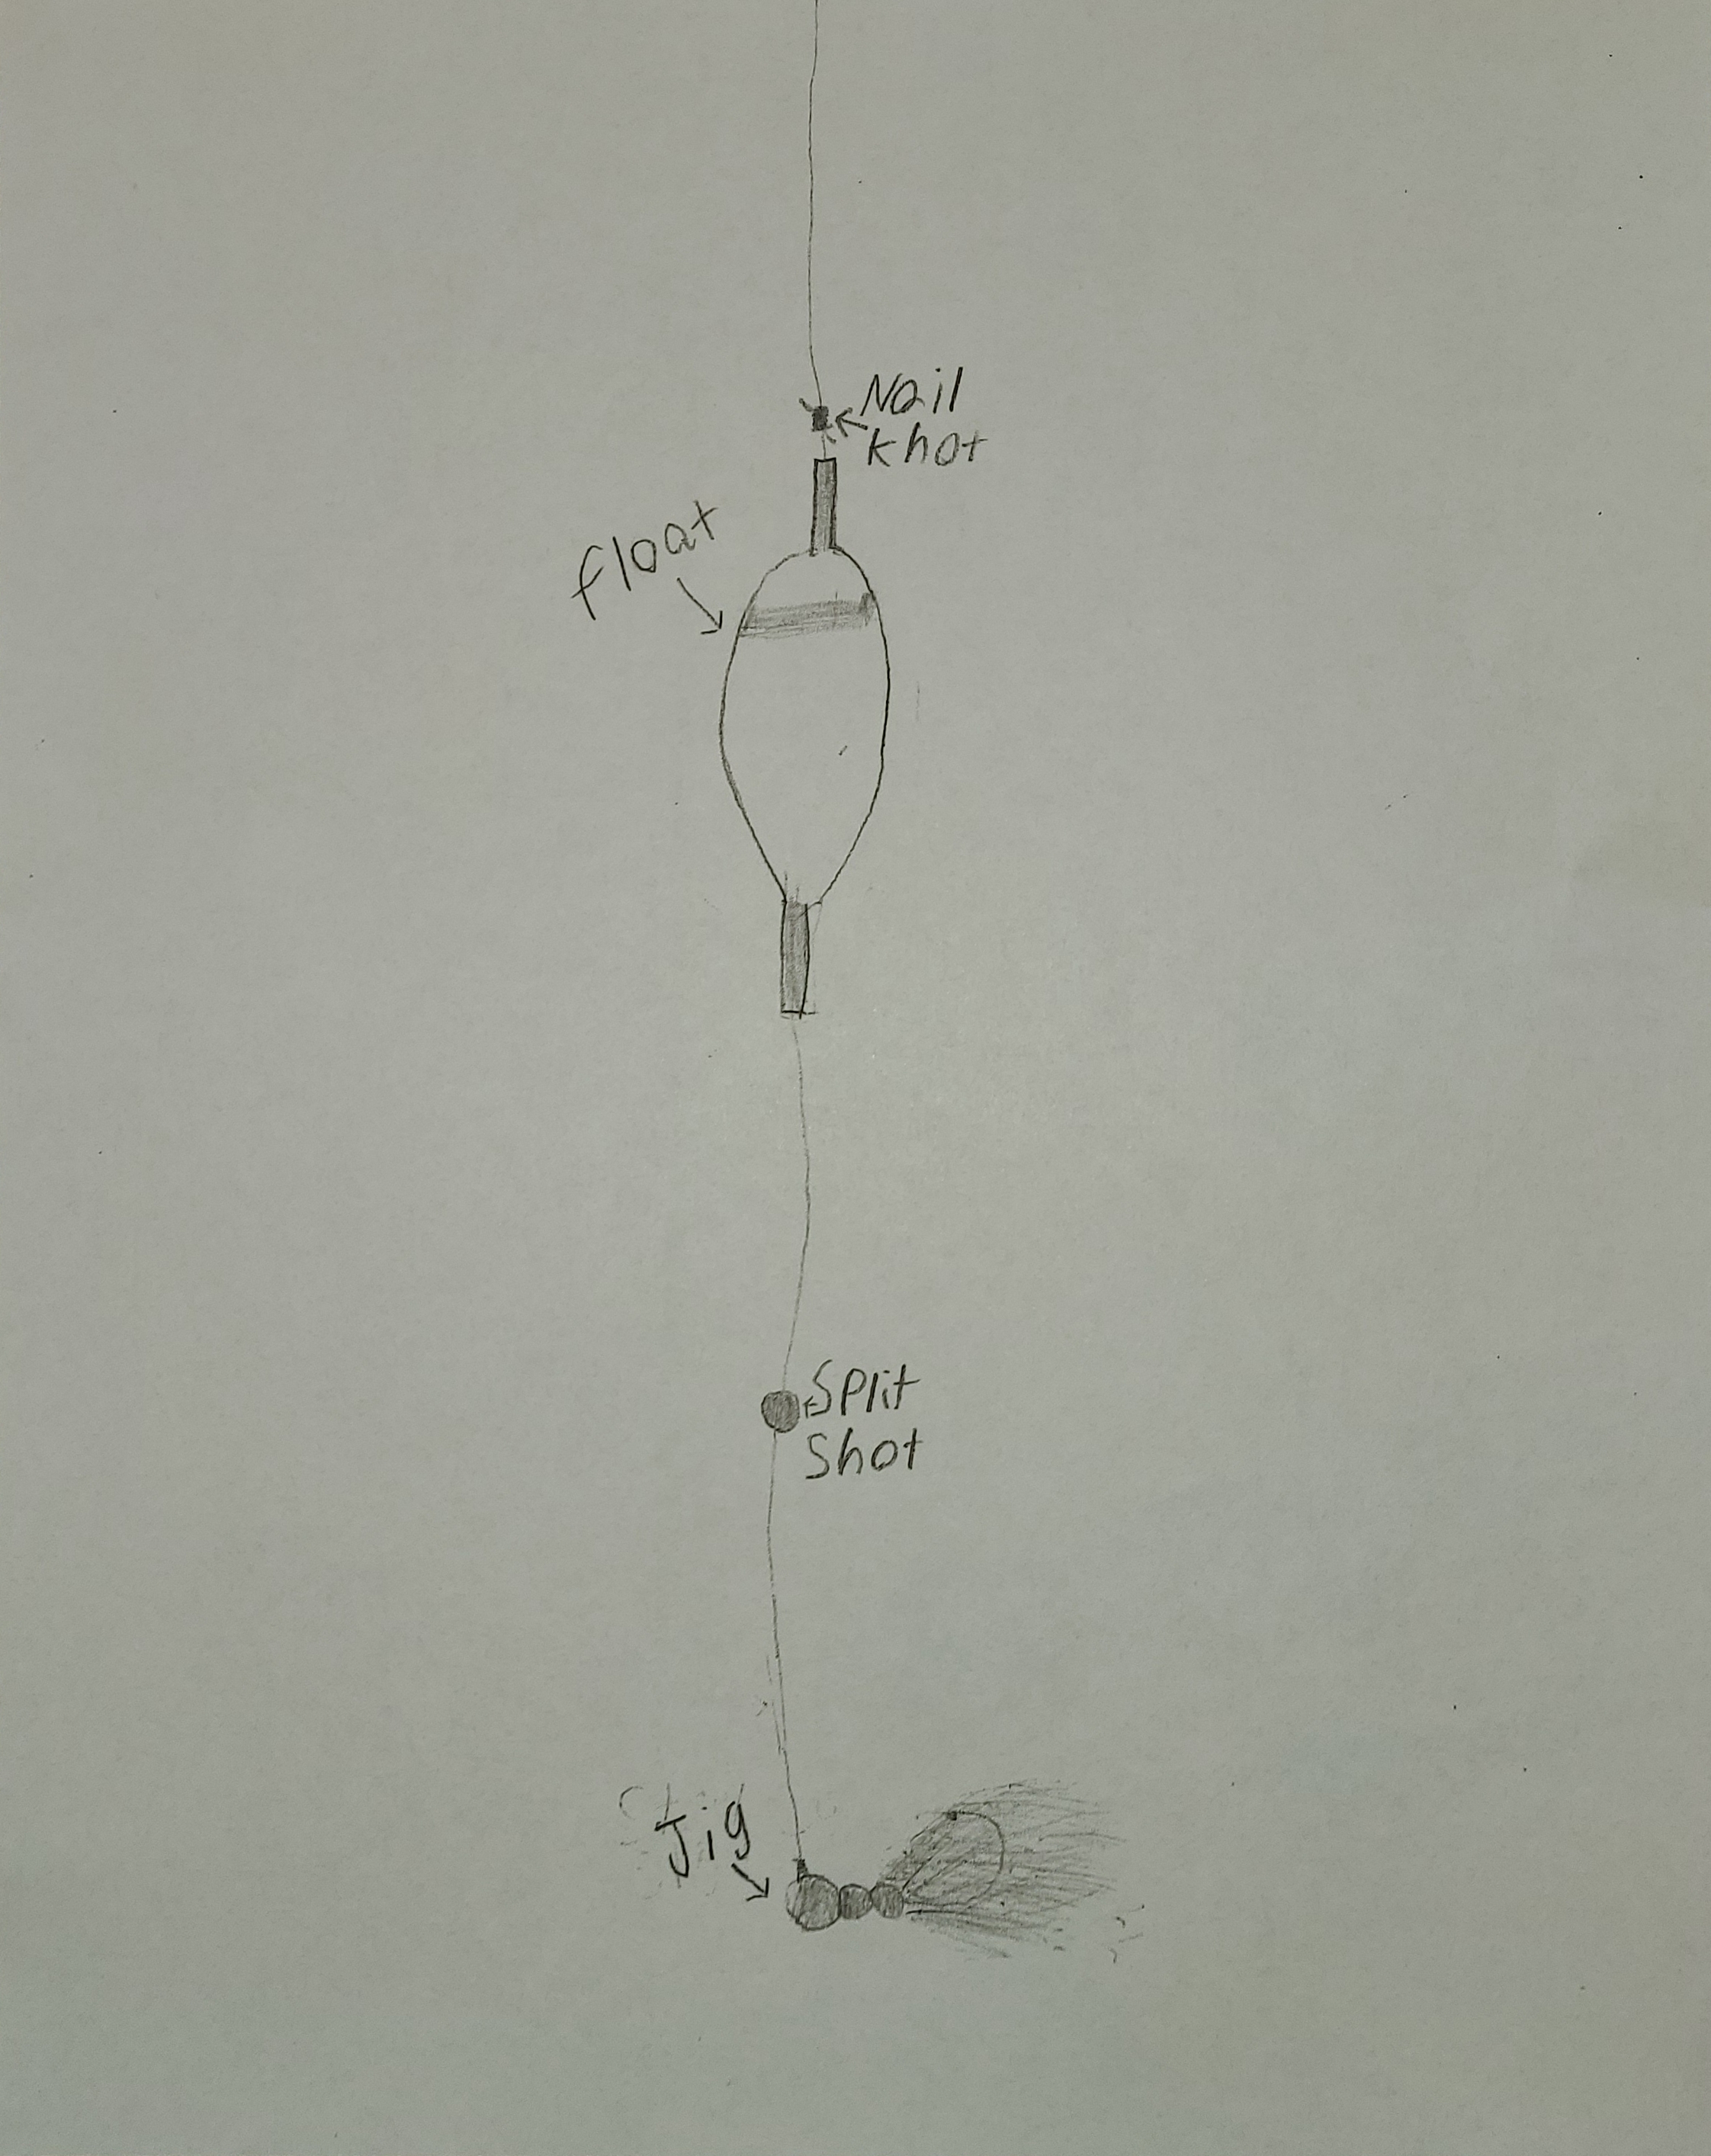 Nail
Knot
float
Split
Shot
Jig